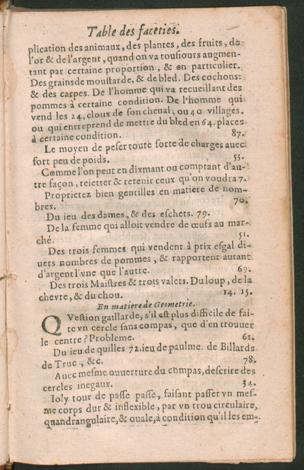 Table des faceties.
plication des animaux, des plantes, des fruits, de
l'or & de l'argent, quand on va tousiours augmen-
tant par certaine proportion, & en particulier.
Des grains de moustarde, & de bled. Des cochons:
& des carpes. De l'homme qui va recueillant des
pommes à certaine condition. De l'homme qui
vend les 24. cloux de son cheual, ou 40 villages.
ou qui entreprend de mettre du bled en 64. places
à certaine condition. 87.
Le moyen de peser toute sorte de charges auec
fort peu de poids. 55.
Comme l'on peut en dixmant ou comptant d'au-
tre façon, reietter & retenir ceux qu'on voudra 7.
Proprietez bien gentilles en matiere de nom-
bres. 70.
Du ieu des dames, & des eschets. 79.
De la femme qui alloit vendre de œufs au mar-
ché. 51.
Des trois femmes qui vendent à prix esgal di-
uers nombres de pommes, & rapportent autant
d'argent l'vne que l'autre. 69.
Des trois Maistres & trois valets. Du loup, de la
chevre, & du chou. 14. 15.
En matiere de Geometrie.
QVestion gaillarde, s'il est plus difficile de fai-
re vn cercle sans compas, que d'en trouuer
le centre? Probleme. 61.
Du ieu de quilles 72. ieu de paulme. de Billards
de Truc, &c. 78.
Auec mesme ouuerture du compas, descrire des
cercles inegaux. 34.
Ioly tour de passe passe, faisant passer vn mes-
me corps dur & inflexible, par vn trou circulaire,
quandrangulaire, & ouale, à condition qu'il les em-